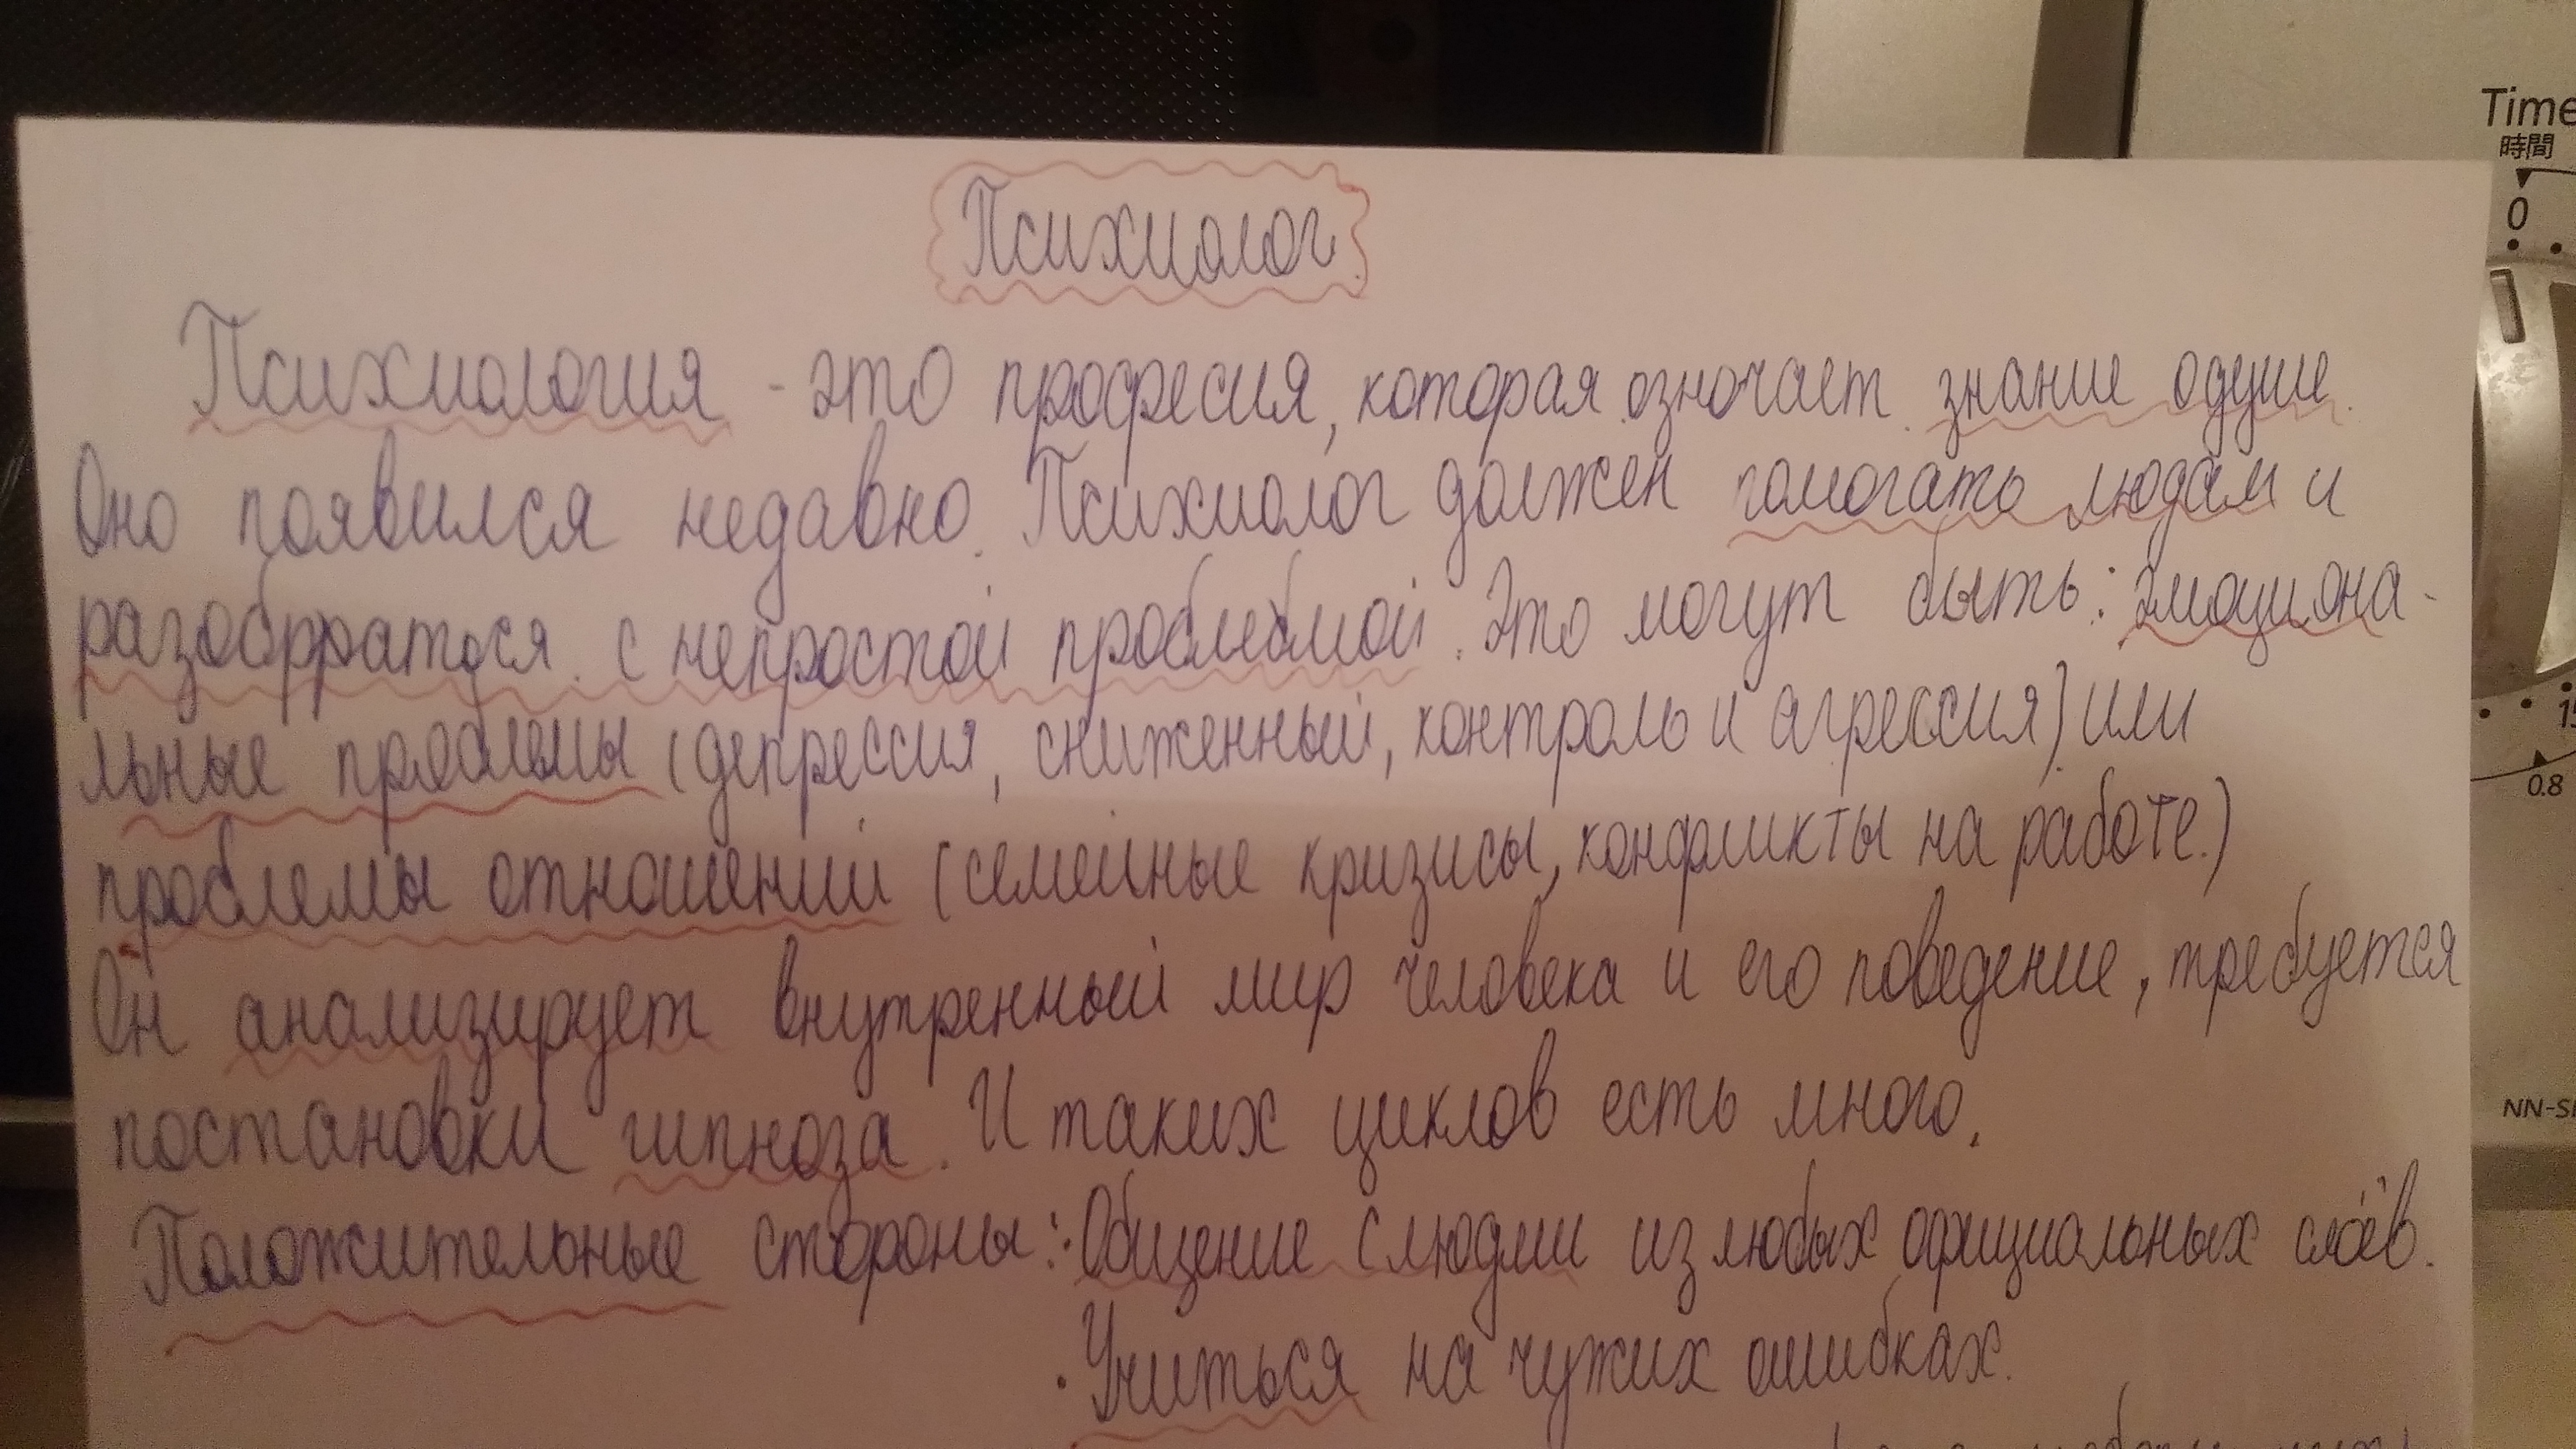 Психиолог.
Психиология - это професия, которая означает знание о душе.
Оно появился недавно. Психиолог должен помогать людям и
разобрраться с непростой проблебмой. Это могут быть: эмоциона-
льные проблемы (депрессия, сниженный, контроль и агрессия) или
проблемы отношений (семейные кризисы, конфликты на работе.)
Он анализирует внутренный мир человека и его поведение, требуется
постановки гипноза. И таких циклов есть много.
Положительные стороны: · Общение с людми из любых официальных слоёв.
· Учиться на чужих ошибках.
Time
時間
0
15
0.8